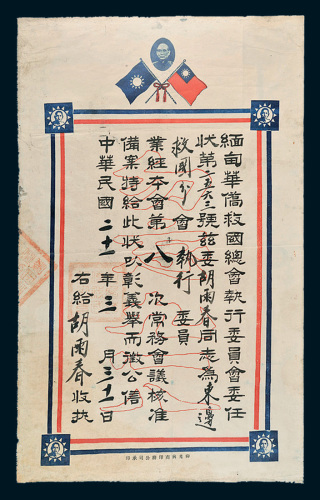 緬甸華僑救國總會執行委員會委任
狀第二五六三號茲委胡雨春同志為東邊
救國分會執行委員
業經本會第八次常務會議核准
備案特給此狀以彰義舉而徵公信
中華民國二十一年三月三十一日
右給胡雨春收執